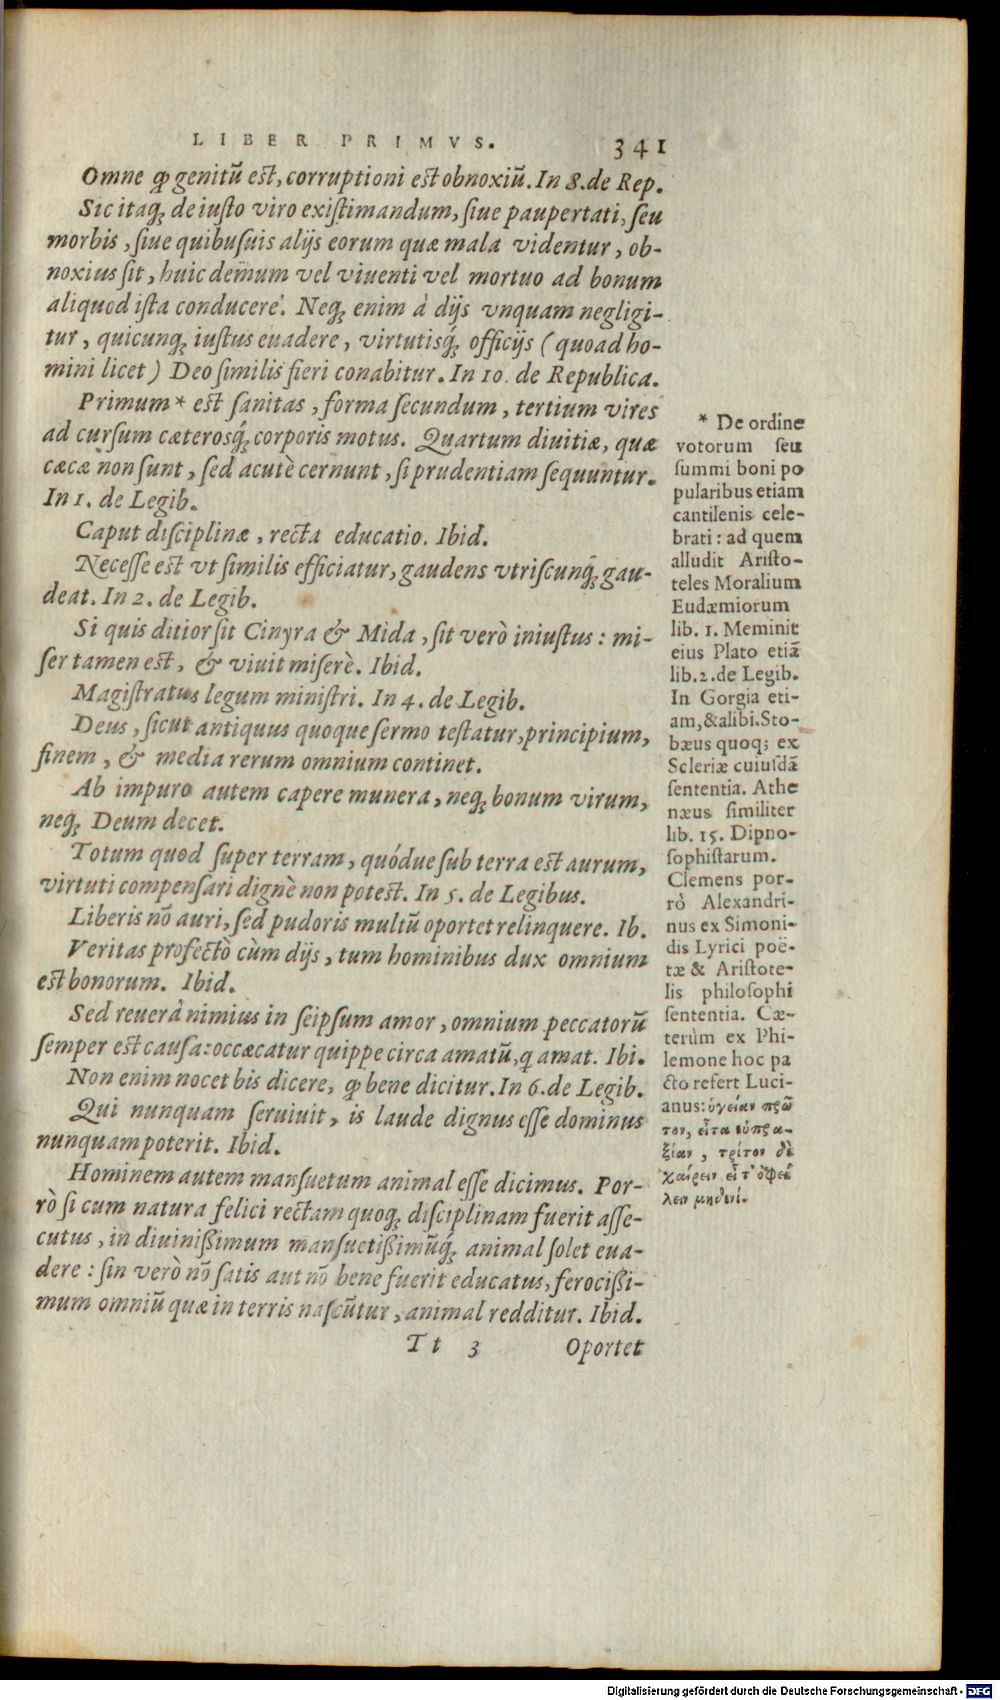 LIBER PRIMVS. 341
Omne ꝙ genitũ est, corruptioni est obnoxiũ. In 8. de Rep.
Sic itaq; de iusto viro existimandum, siue paupertati, seu
morbis, siue quibusuis alijs eorum quæ mala videntur, ob-
noxius sit, huic demum vel viuenti vel mortuo ad bonum
aliquod ista conducere. Neq; enim à dijs vnquam negligi-
tur, quicunq; iustus euadere, virtutisq́; officijs (quoad ho-
mini licet) Deo similis fieri conabitur. In 10. de Republica.
Primum* est sanitas, forma secundum, tertium vires
ad cursum cæterosq́; corporis motus. Quartum diuitiæ, quæ
cæcæ non sunt, sed acutè cernunt, si prudentiam sequuntur.
In 1. de Legib.
Caput disciplinæ, recta educatio. Ibid.
Necesse est vt similis efficiatur, gaudens vtriscunq́; gau-
deat. In 2. de Legib.
Si quis ditior sit Cinyra & Mida, sit verò iniustus: mi-
ser tamen est, & viuit miserè. Ibid.
Magistratus legum ministri. In 4. de Legib.
Deus, sicut antiquus quoque sermo testatur, principium,
finem, & media rerum omnium continet.
Ab impuro autem capere munera, neq; bonum virum,
neq; Deum decet.
Totum quod super terram, quódue sub terra est aurum,
virtuti compensari dignè non potest. In 5. de Legibus.
Liberis nõ auri, sed pudoris multũ oportet relinquere. Ib.
Veritas profectò cùm dijs, tum hominibus dux omnium
est bonorum. Ibid.
Sed reuerà nimius in seipsum amor, omnium peccatorũ
semper est causa: occæcatur quippe circa amatũ, q amat. Ibi.
Non enim nocet bis dicere, ꝙ bene dicitur. In 6. de Legib.
Qui nunquam seruiuit, is laude dignus esse dominus
nunquam poterit. Ibid.
Hominem autem mansuetum animal esse dicimus. Por-
rò si cum natura felici rectam quoq; disciplinam fuerit asse-
cutus, in diuinißimum mansuetißimũq́; animal solet eua-
dere: sin verò nõ satis aut nõ bene fuerit educatus, ferocißi-
mum omniũ quæ in terris nascũtur, animal redditur. Ibid.
Tt 3 Oportet
* De ordine
votorum seu
summi boni po
pularibus etiam
cantilenis cele-
brati: ad quem
alludit Aristo-
teles Moralium
Eudæmiorum
lib. 1. Meminit
eius Plato etiã
lib. 2. de Legib.
In Gorgia eti-
am, & alibi. Sto-
bæus quoq; ex
Scleriæ cuiusdã
sententia. Athe
næus similiter
lib. 15. Dipno-
sophistarum.
Clemens por-
rò Alexandri-
nus ex Simoni-
dis Lyrici poë-
tæ & Aristote-
lis philosophi
sententia. Cæ-
terùm ex Phi-
lemone hoc pa
cto refert Luci-
anus: ὑγείαν πρῶ
τον, εἶτα εὐπρα-
ξίαν, τρίτον δὲ
χαίρειν εἶτ' ὀφεί
λειν μηδενί.
Digitalisierung gefördert durch die Deutsche Forschungsgemeinschaft - DFG